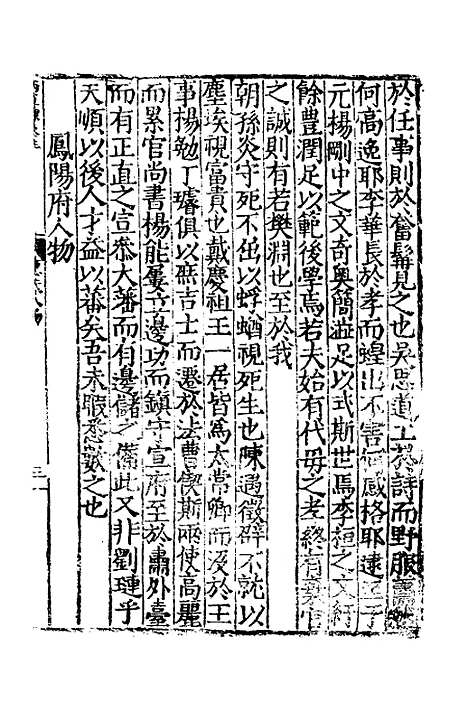 於任事則於奮髯見之也吳思道工於詩而野服
何高逸耶李華長於孝而蝗出不害何感格耶逮
元楊剛中之文奇奧簡澁足以式斯世焉李桓之文
餘豊潤足以範後學焉若夫始有代毋之孝終有
之誠則有若樊淵也至於我
朝孫炎守死不屈以蜉蝣視死生也陳遇徵辟不就以
塵埃視富貴也戴慶祖王一居皆為太常卿而沒於王
事楊勉丁璿俱以庶吉士而遷於法曹偰斯兩使高麗
而累官尚書楊能屢立邊功而鎮守宣府至於肅外臺
而有正直之宣叅大藩而有邊儲之備此又非劉璉乎
天順以後人才益以蕃矣吾未暇悉數之也
鳳陽府人物